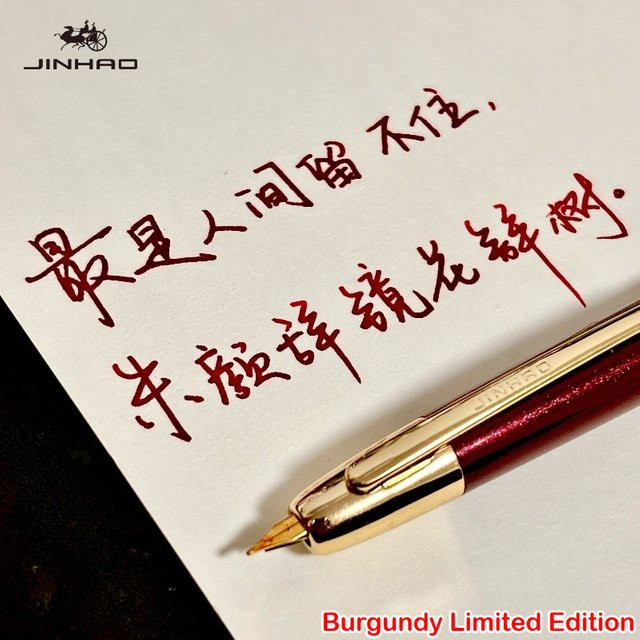 JINHAO
最是人间留不住，
朱颜辞镜花辞树。
JINHAO
Burgundy Limited Edition